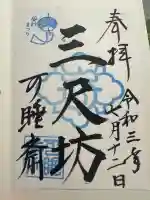 奉拝
令和三年
月十二日
三尺坊
可睡齋